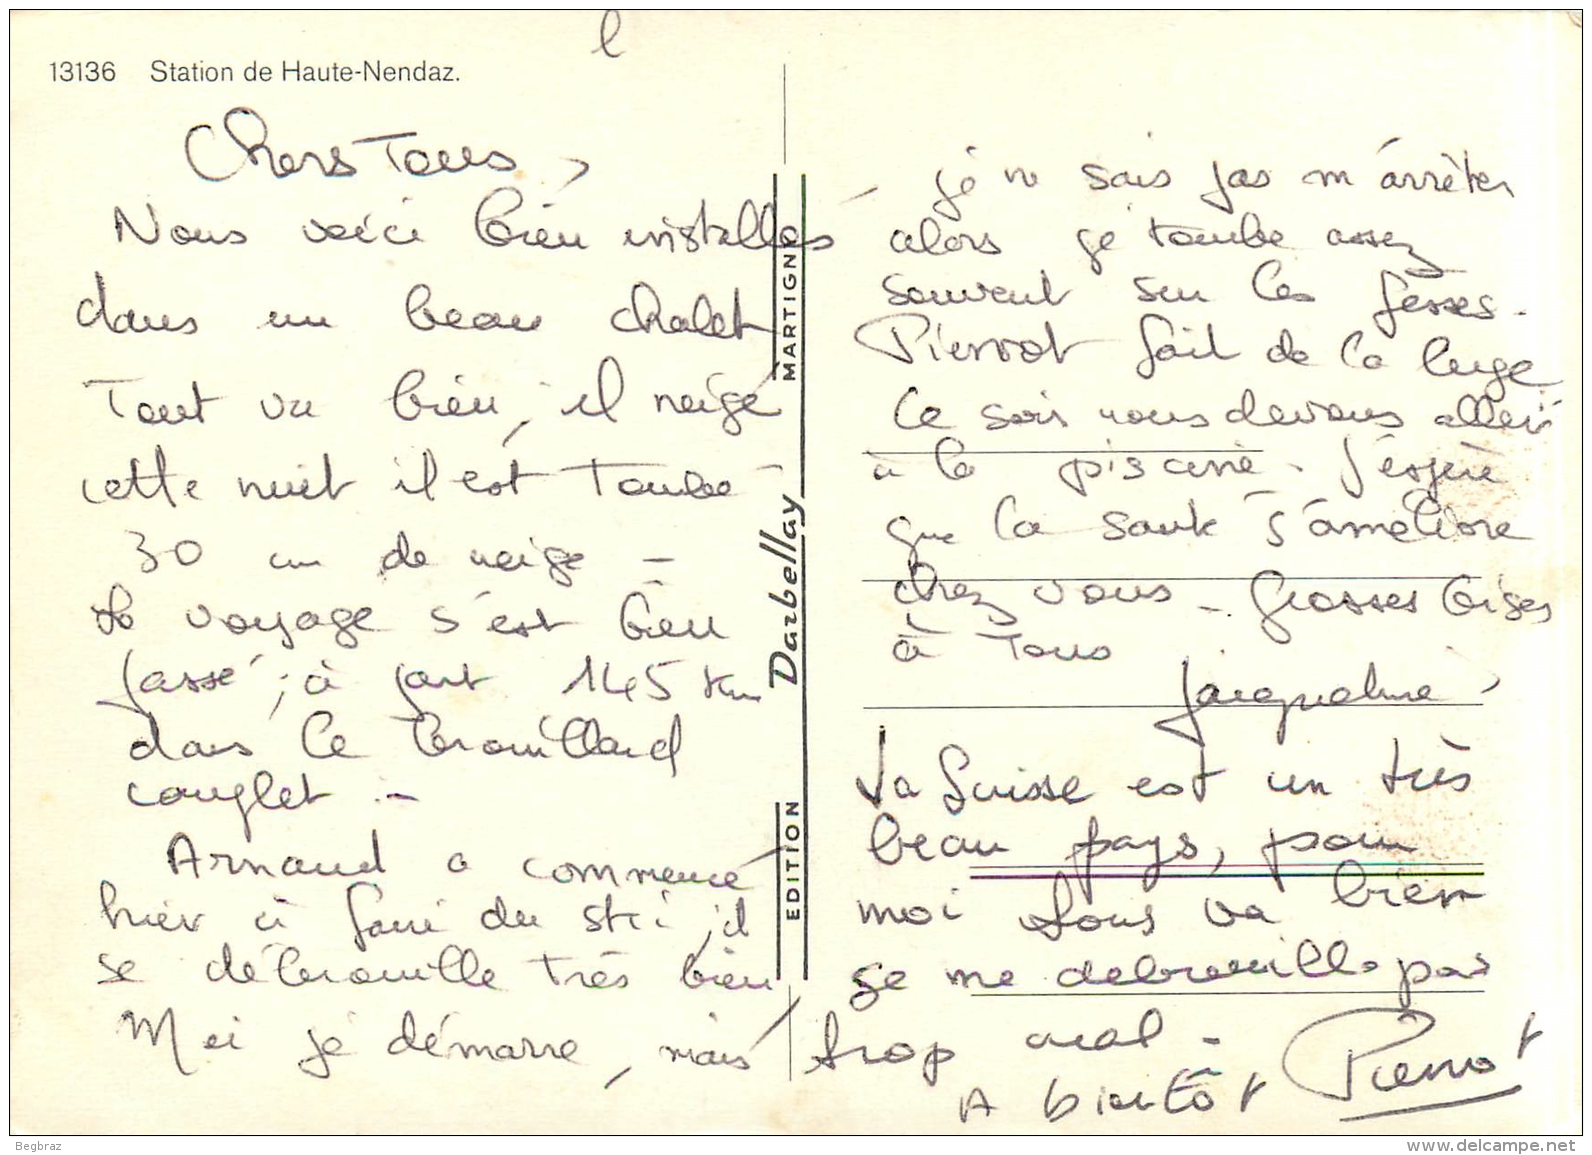 13136 Station de Haute-Nendaz.
Chers Tous,
Nous voici bien installés
dans un beau chalet
Tout va bien, il neige
cette nuit il est tombé
30 cm de neige -
Le voyage s'est bien
passé, à part 145 km
dans le brouillard
complet -
Arnaud a commencé
hier à faire du ski, il
se débrouille très bien
Moi je démarre, mais
je ne sais pas m'arrêter
alors je tombe assez
souvent sur les fesses.
Pierrot fait de la luge
Ce soir nous devons aller
à la piscine. J'espère
que la santé s'améliore
chez vous - Grosses bises
à Tous
Jacqueline
La Suisse est un très
beau pays, pour
moi tous va bien
je me debrouille pas
trop mal -
A bientôt Pierrot
EDITION Darbellay MARTIGNY
Begbraz
www.delcampe.net